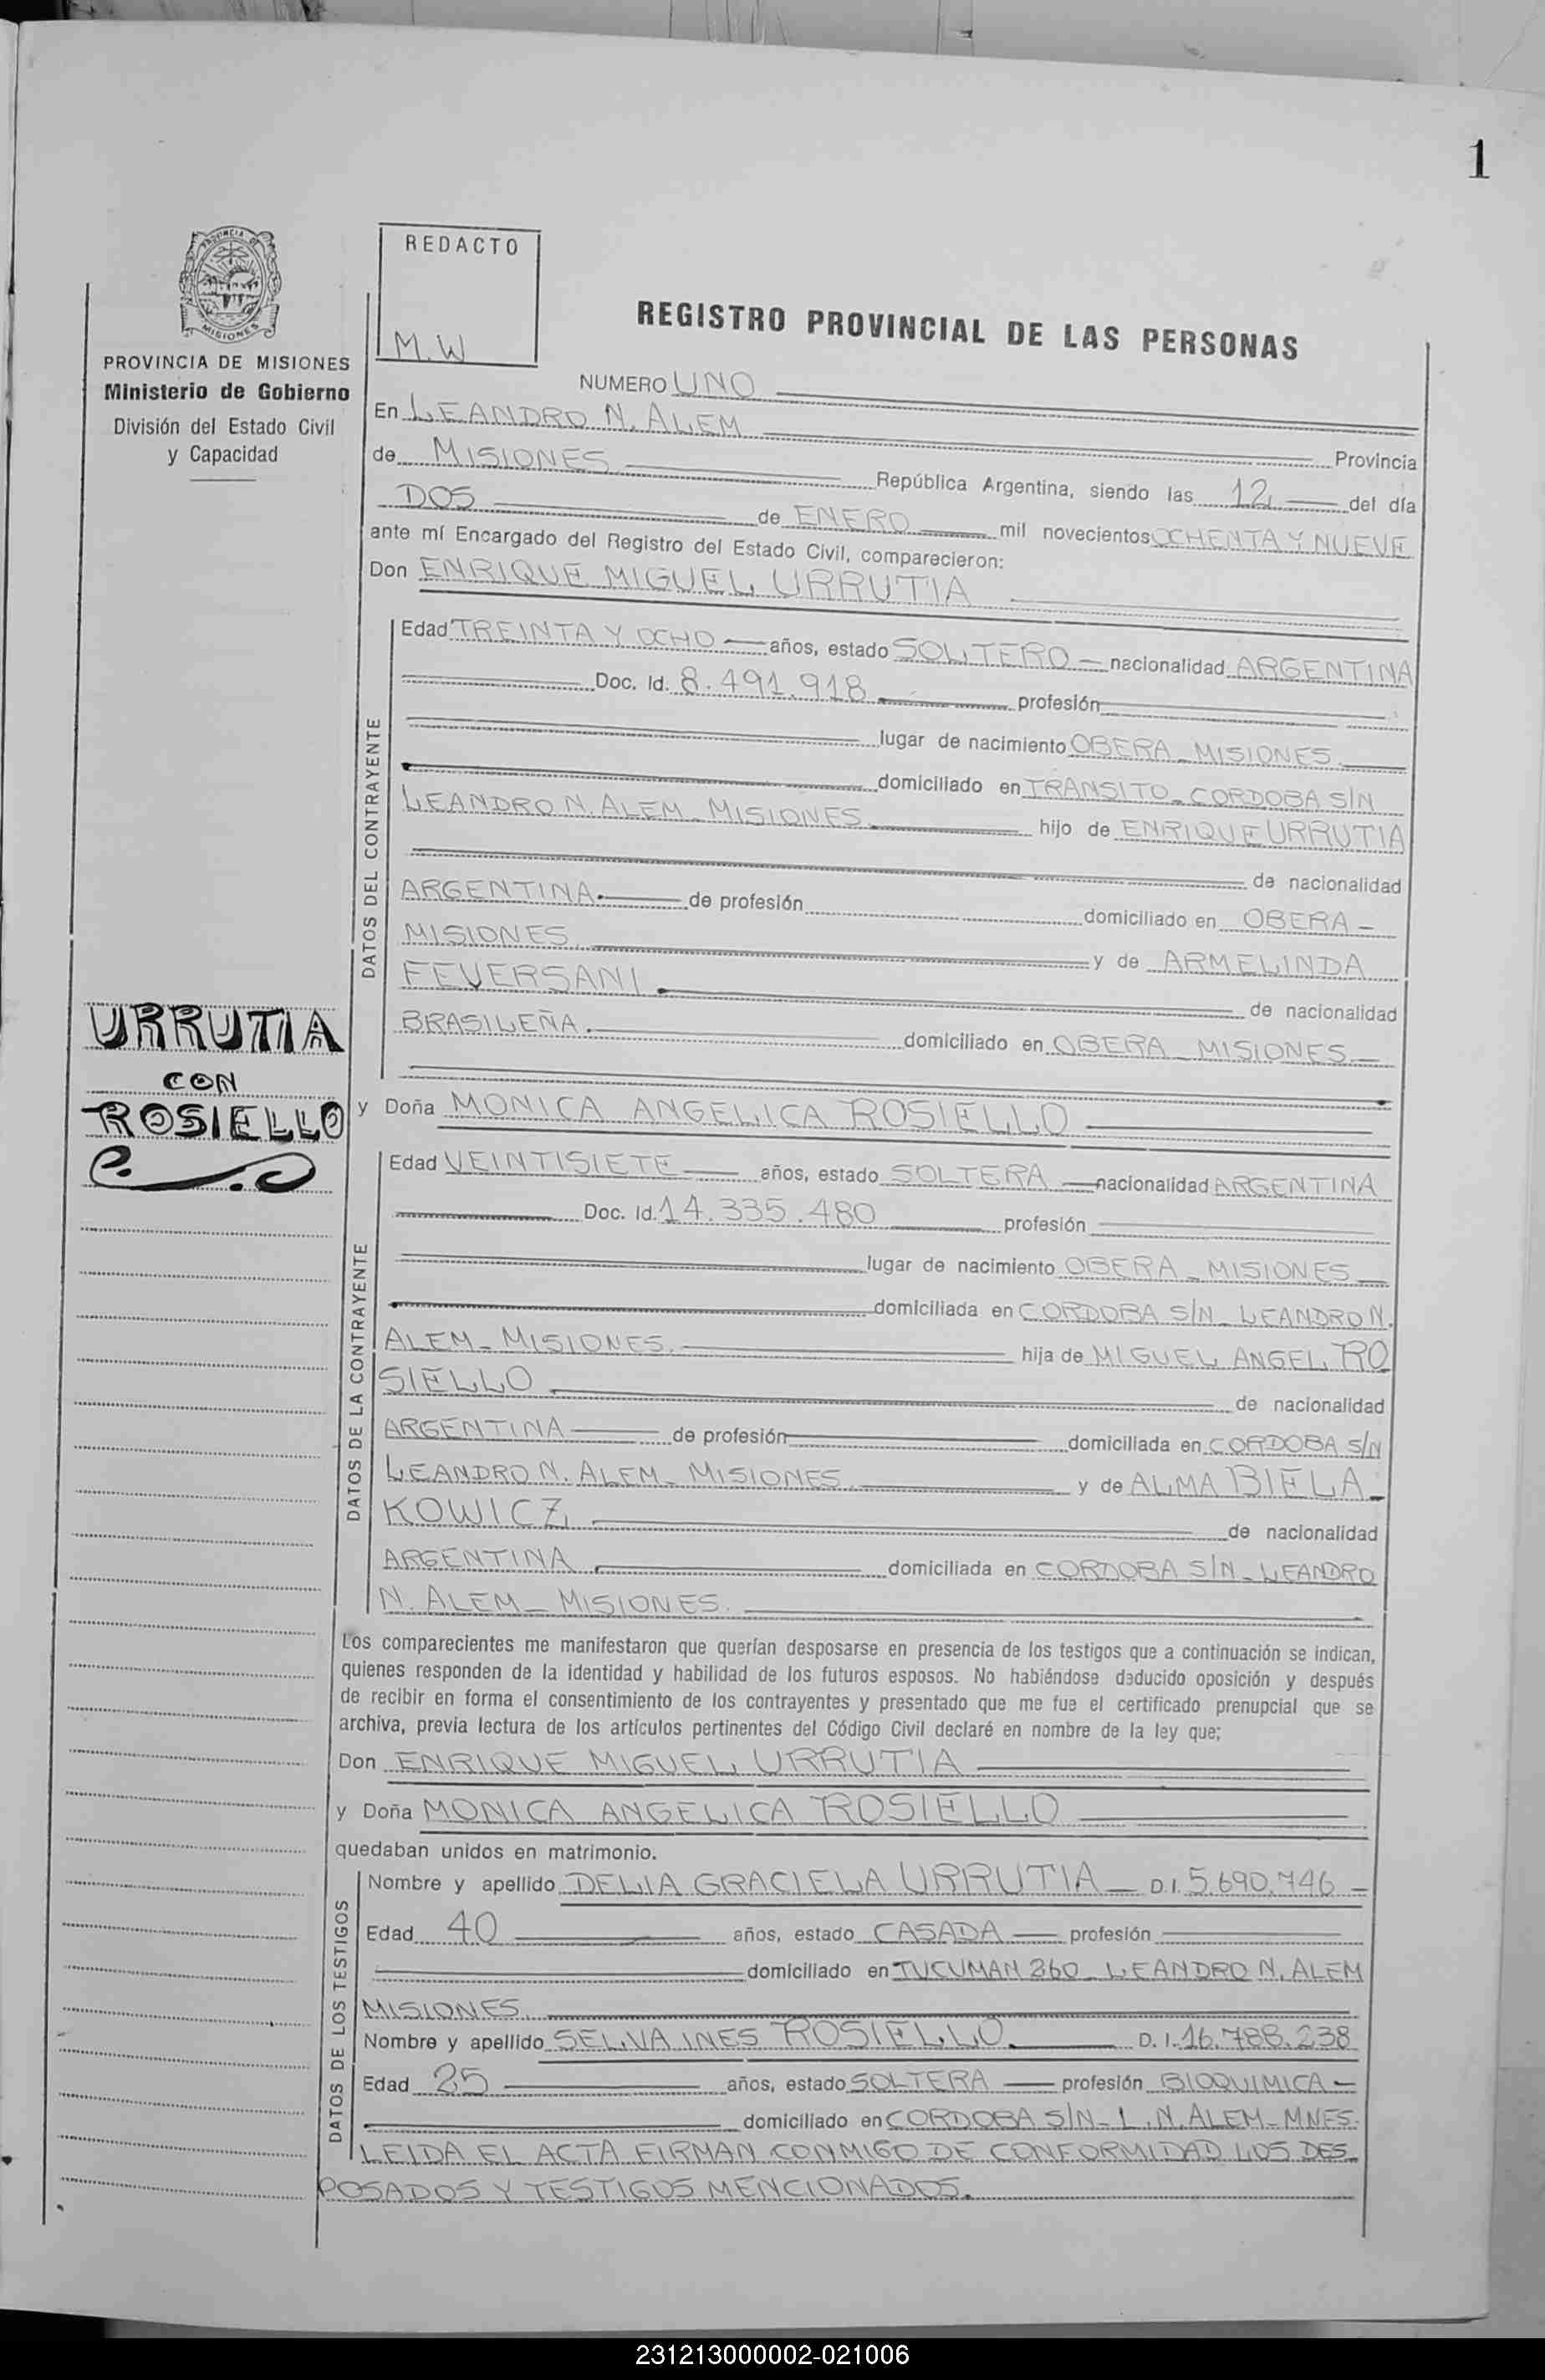 1
PROVINCIA DE
MISIONES
PROVINCIA DE MISIONES
Ministerio de Gobierno
División del Estado Civil
y Capacidad
REDACTO
M.W
REGISTRO PROVINCIAL DE LAS PERSONAS
NUMERO UNO
En LEANDRO N. ALEM
Provincia
de MISIONES República Argentina, siendo las 12 del día
DOS de ENERO mil novecientos OCHENTA Y NUEVE
ante mí Encargado del Registro del Estado Civil, comparecieron:
Don ENRIQUE MIGUEL URRUTIA
DATOS DEL CONTRAYENTE
Edad TREINTA Y OCHO años, estado SOLTERO nacionalidad ARGENTINA
Doc. Id. 8.491.918 profesión
lugar de nacimiento OBERA - MISIONES
domiciliado en TRANSITO - CORDOBA S/N
LEANDRO N. ALEM - MISIONES. hijo de ENRIQUE URRUTIA
de nacionalidad
ARGENTINA. de profesión domiciliado en OBERA -
MISIONES. y de ARMELINDA
FEVERSANI. de nacionalidad
BRASILEÑA. domiciliado en OBERA - MISIONES
URRUTIA
CON
ROSIELLO
y Doña MONICA ANGELICA ROSIELLO
DATOS DE LA CONTRAYENTE
Edad VEINTISIETE años, estado SOLTERA nacionalidad ARGENTINA
Doc. Id. 14.335.480 profesión
lugar de nacimiento OBERA - MISIONES
domiciliada en CORDOBA S/N - LEANDRO N.
ALEM - MISIONES. hija de MIGUEL ANGEL RO
SIELLO de nacionalidad
ARGENTINA de profesión domiciliada en CORDOBA S/N
LEANDRO N. ALEM - MISIONES. y de ALMA BIELA-
KOWICZ, de nacionalidad
ARGENTINA, domiciliada en CORDOBA S/N - LEANDRO
N. ALEM - MISIONES.
Los comparecientes me manifestaron que querían desposarse en presencia de los testigos que a continuación se indican,
quienes responden de la identidad y habilidad de los futuros esposos. No habiéndose deducido oposición y después
de recibir en forma el consentimiento de los contrayentes y presentado que me fue el certificado prenupcial que se
archiva, previa lectura de los artículos pertinentes del Código Civil declaré en nombre de la ley que;
Don ENRIQUE MIGUEL URRUTIA
y Doña MONICA ANGELICA ROSIELLO
quedaban unidos en matrimonio.
DATOS DE LOS TESTIGOS
Nombre y apellido DELIA GRACIELA URRUTIA - D.I. 5.690.746 -
Edad 40 años, estado CASADA profesión
domiciliado en TUCUMAN 260 - LEANDRO N. ALEM
MISIONES.
Nombre y apellido SELVA INES ROSIELLO. D.I. 16.788.238
Edad 25 años, estado SOLTERA profesión BIOQUIMICA -
domiciliado en CORDOBA S/N - L.N. ALEM - MNES.
LEIDA EL ACTA FIRMAN CONMIGO DE CONFORMIDAD LOS DES-
POSADOS Y TESTIGOS MENCIONADOS.
231213000002-021006